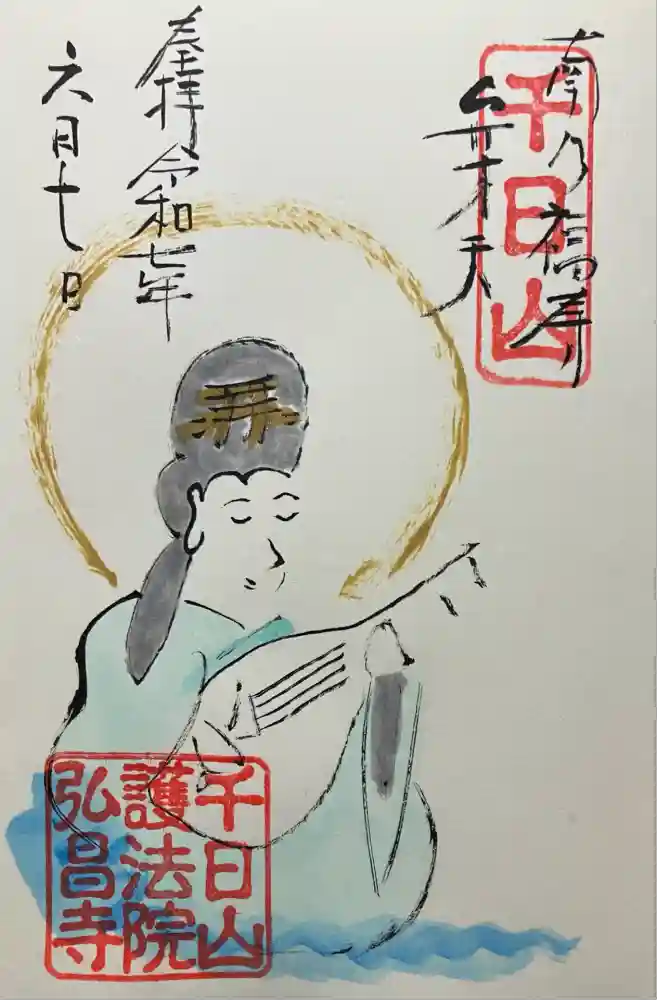 南乃福寿
弁才天
奉拝 令和七年
六月十七日
千日山
千日山
護法院
弘昌寺